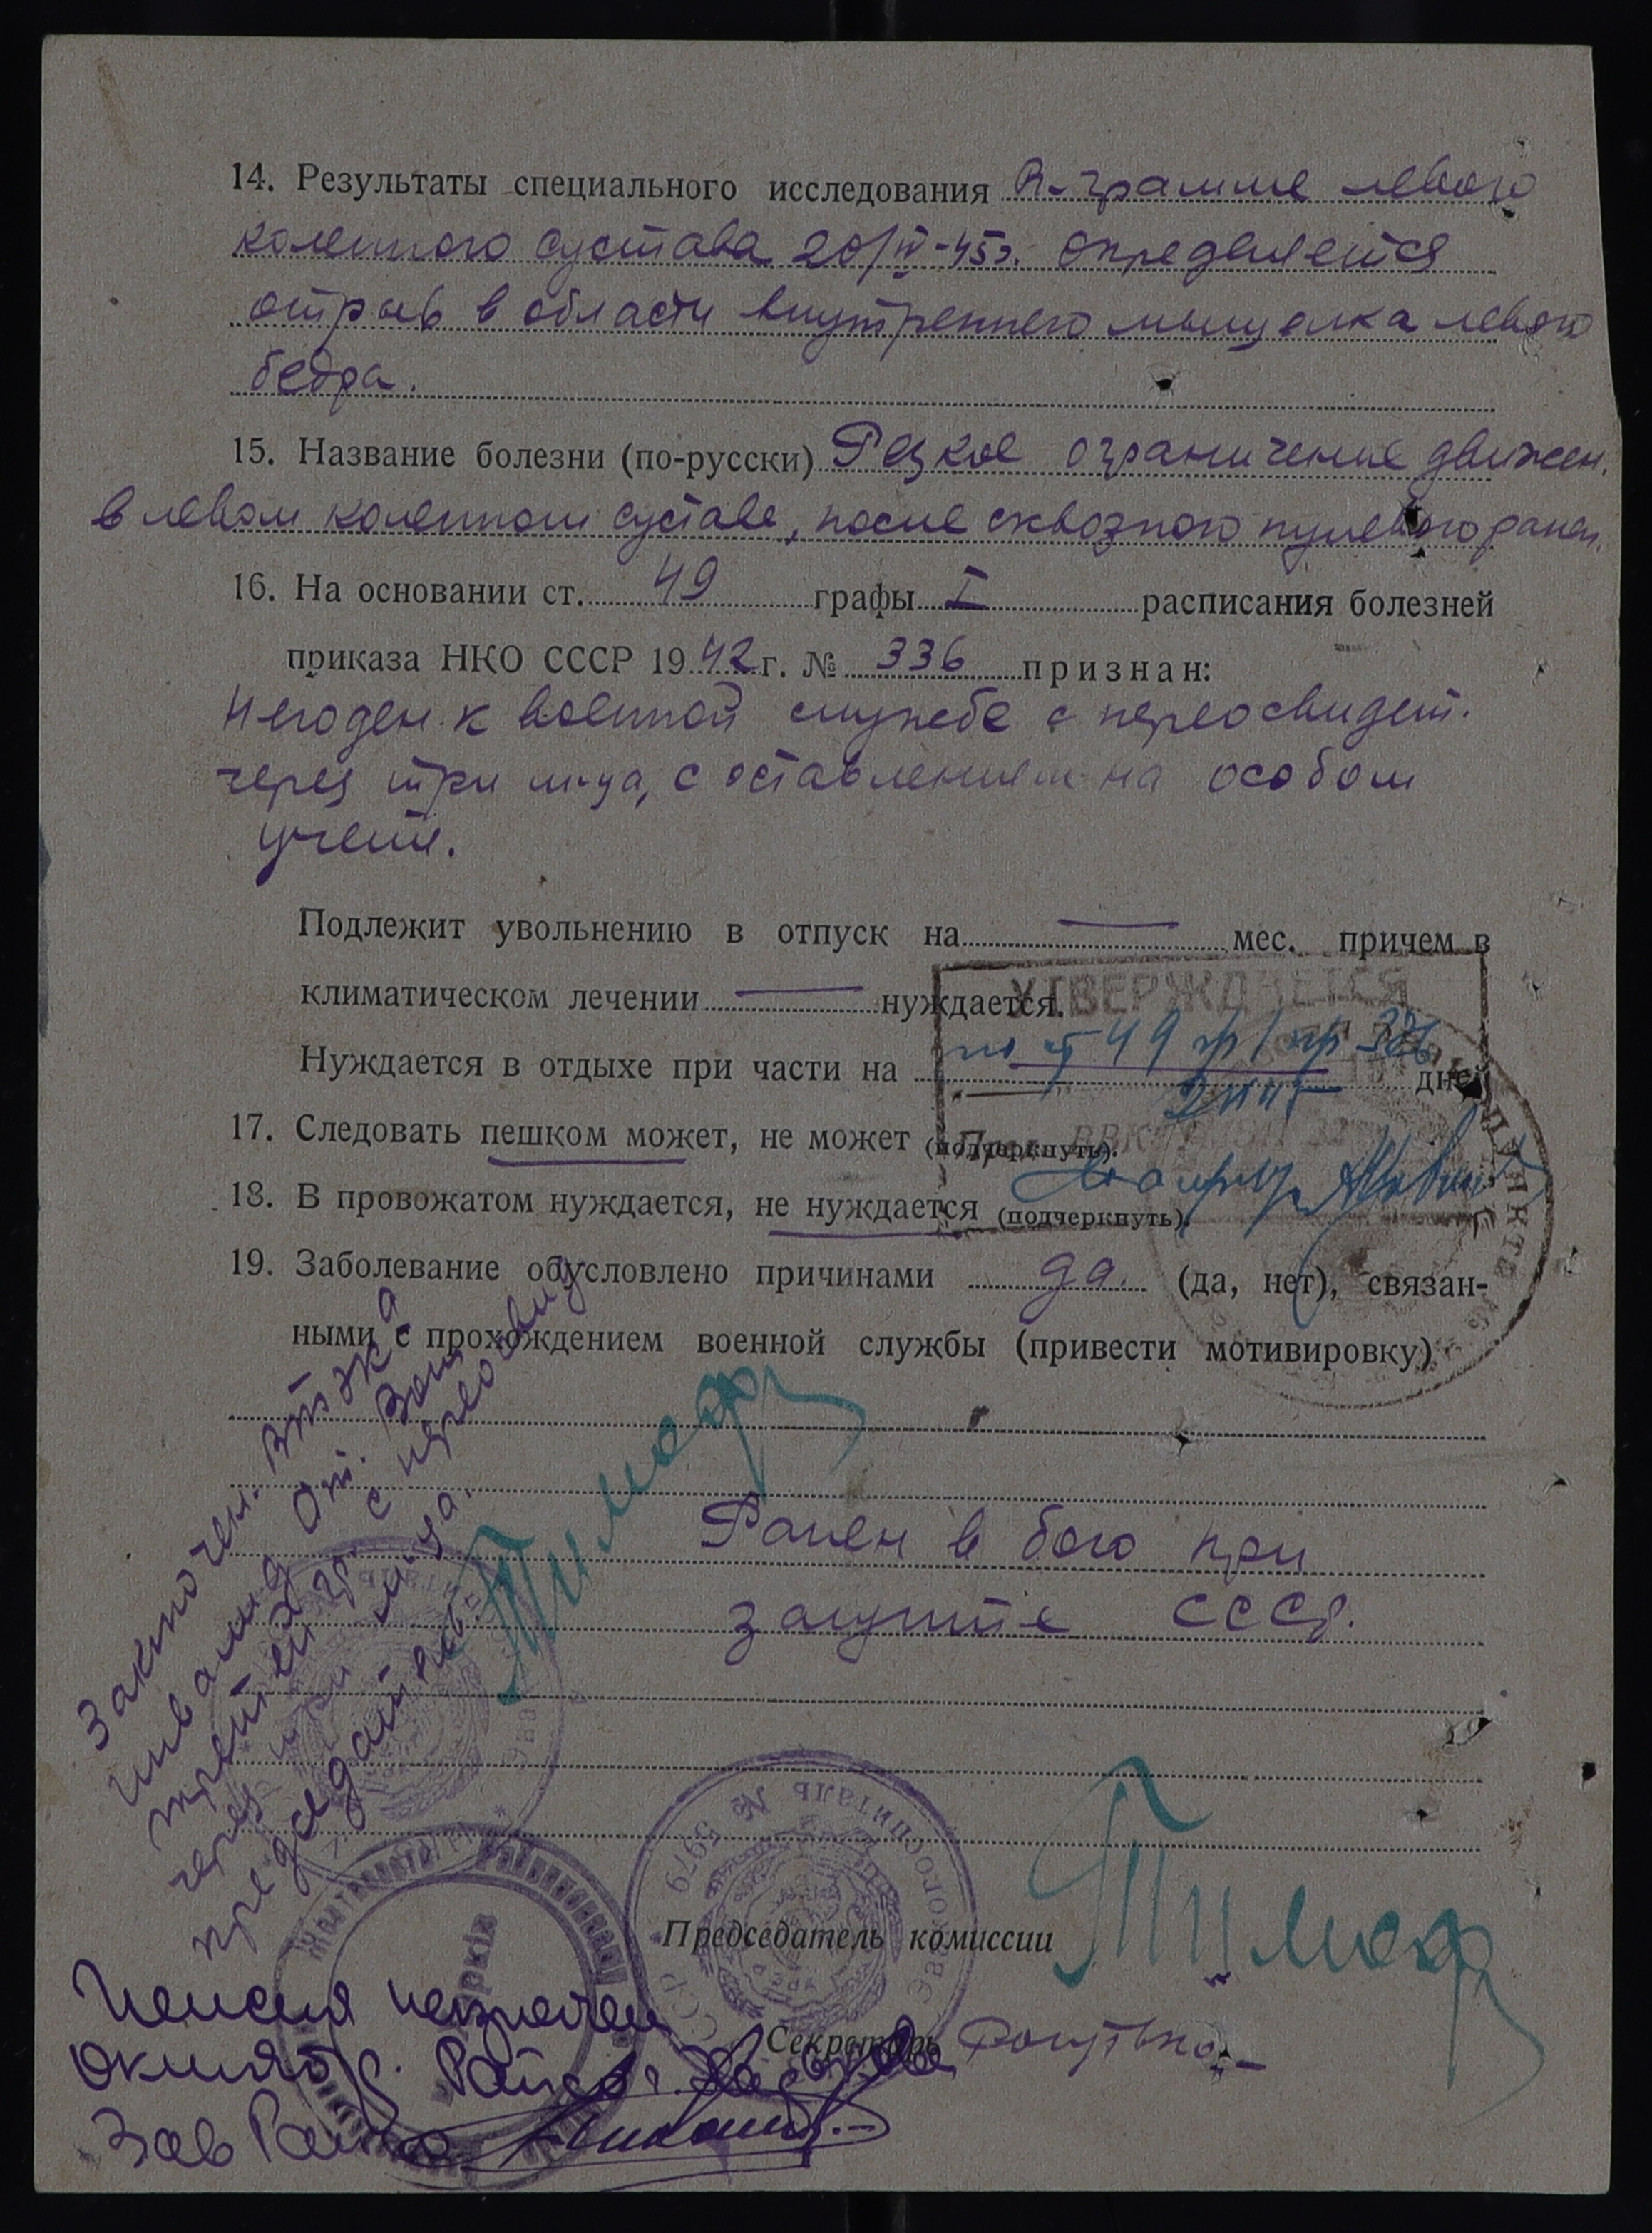 14. Результаты специального исследования R-грамме левого
коленного сустава 20/IV-45г. определяется
отрыв в области внутреннего мыщелка левого
бедра.
15. Название болезни (по-русски) Резкое ограничение движен.
в левом коленном суставе, после сквозного пулевого ранен.
16. На основании ст. 49 графы I расписания болезней
приказа НКО СССР 1942 г. № 336 признан:
Негоден к военной службе с переосвидет.
через три м-ца, с оставлением на особом
учете.
Подлежит увольнению в отпуск на — мес. причем в
климатическом лечении — нуждается.
УТВЕРЖДАЕТСЯ
по ст 49 гр I пр 336
Нуждается в отдыхе при части на — дней
17. Следовать пешком может, не может (подчеркнуть).
Пред. ВВК
18. В провожатом нуждается, не нуждается (подчеркнуть).
19. Заболевание обусловлено причинами да. (да, нет), связан-
ными с прохождением военной службы (привести мотивировку)
Ранен в бою при
защите СССР.
Заключен. ВТЭК
инвалид От. Войн
третьей гр. с переосвид
через три м-ца.
председатель
Эвакогоспиталь № 5979
Председатель комиссии
Секретарь
Пенсия назначен
Октябр.
Зав Райсо